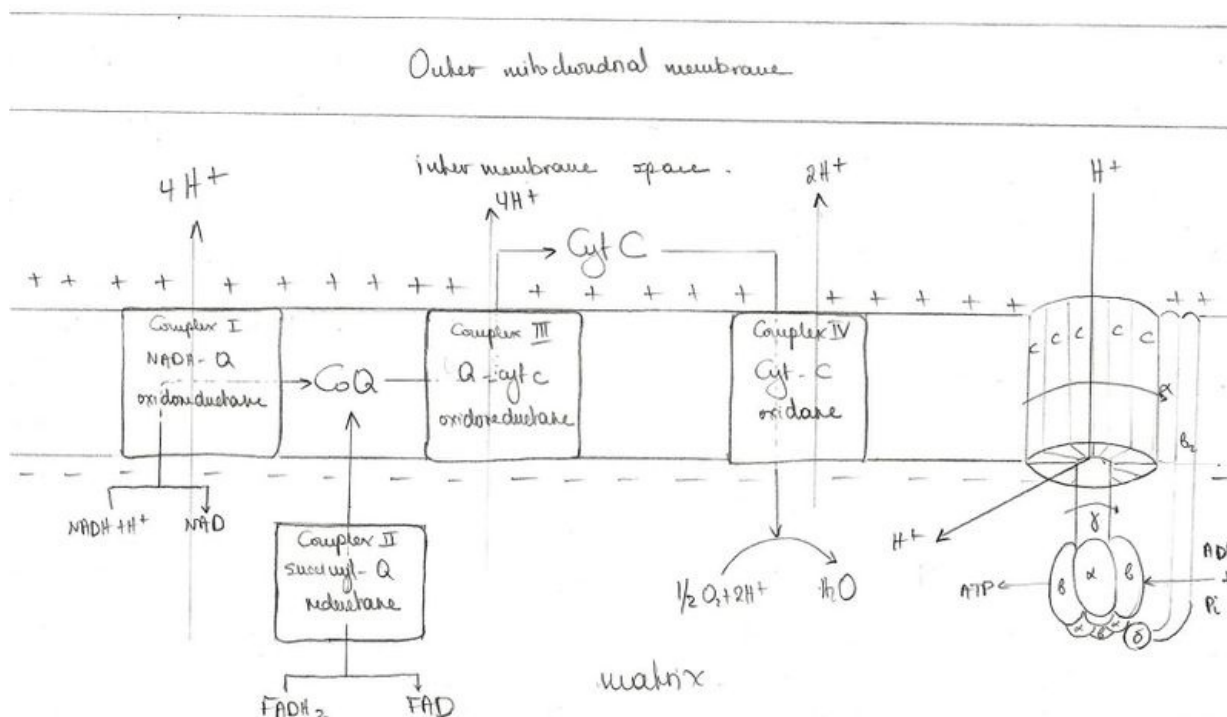 Outer mitochondrial membrane
inter membrane space.
4H+
4H+
2H+
H+
Cyt C
+ + + + + + + + + + + + + + + + + + + + + +
Complex I
NADH-Q
oxidoreductase
CoQ
Complex III
Q-cyt c
oxidoreductase
Complex IV
Cyt-C
oxidase
C C C C C
α
b2
- - - - - - - - - - - - - - - - - - - - - -
NADH+H+ NAD
Complex II
succinyl-Q
reductase
FADH2 FAD
1/2 O2+2H+ H2O
H+
γ
β α β
α β α δ
ATP
AD
Pi
matrix